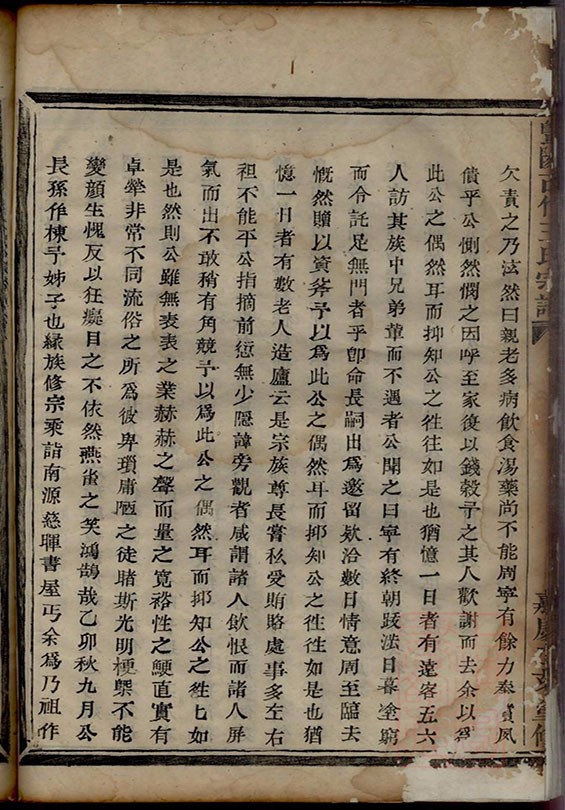 欠責之乃泫然曰親老多病飲食湯藥尚不能周寧有餘力奉賞夙
債乎公惻然憫之因呼至家復以錢穀予之其人歡謝而去余以為
此公之偶然耳而抑知公之徃徃如是也猶憶一日者有遠客五六
人訪其族中兄弟輩而不遇者公聞之曰寧有終朝跋涉日暮塗窮
而令託足無門者乎卽命長嗣出為邀留欵洽數日情意周至臨去
慨然贈以資斧予以為此公之偶然耳而抑知公之徃徃如是也猶
憶一日者有數老人造廬云是宗族尊長嘗私受賄賂處事多左右
袒不能平公指摘前愆無少隱諱旁觀者咸謂諸人飲恨而諸人屏
氣而出不敢稍有角競予以為此公之偶然耳而抑知公之徃徃如
是也然則公雖無表表之業赫赫之聲而量之寬裕性之鯁直實有
卓犖非常不同流俗之所為彼卑瑣庸陋之徒睹斯光明梗槩不能
變顏生愧反以狂癡目之不依然燕雀之笑鴻鵠哉乙卯秋九月公
長孫作棟予姊子也緣族修宗乘詣南源慈暉書屋丐余為乃祖作
王氏宗譜